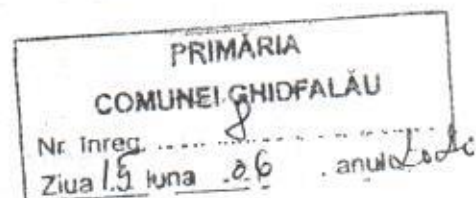 PRIMĂRIA
COMUNEI GHIDFALĂU
Nr. înreg. 8
Ziua 15 luna 06 anul